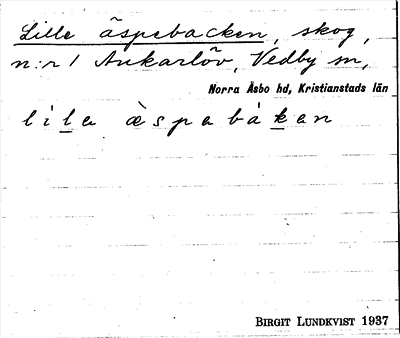 Lille äspebacken, skog,
n:r 1 Ankarlöv, Vedby sn,
Norra Åsbo hd, Kristianstads län
lila æ̀spabákan
BIRGIT LUNDKVIST 1937